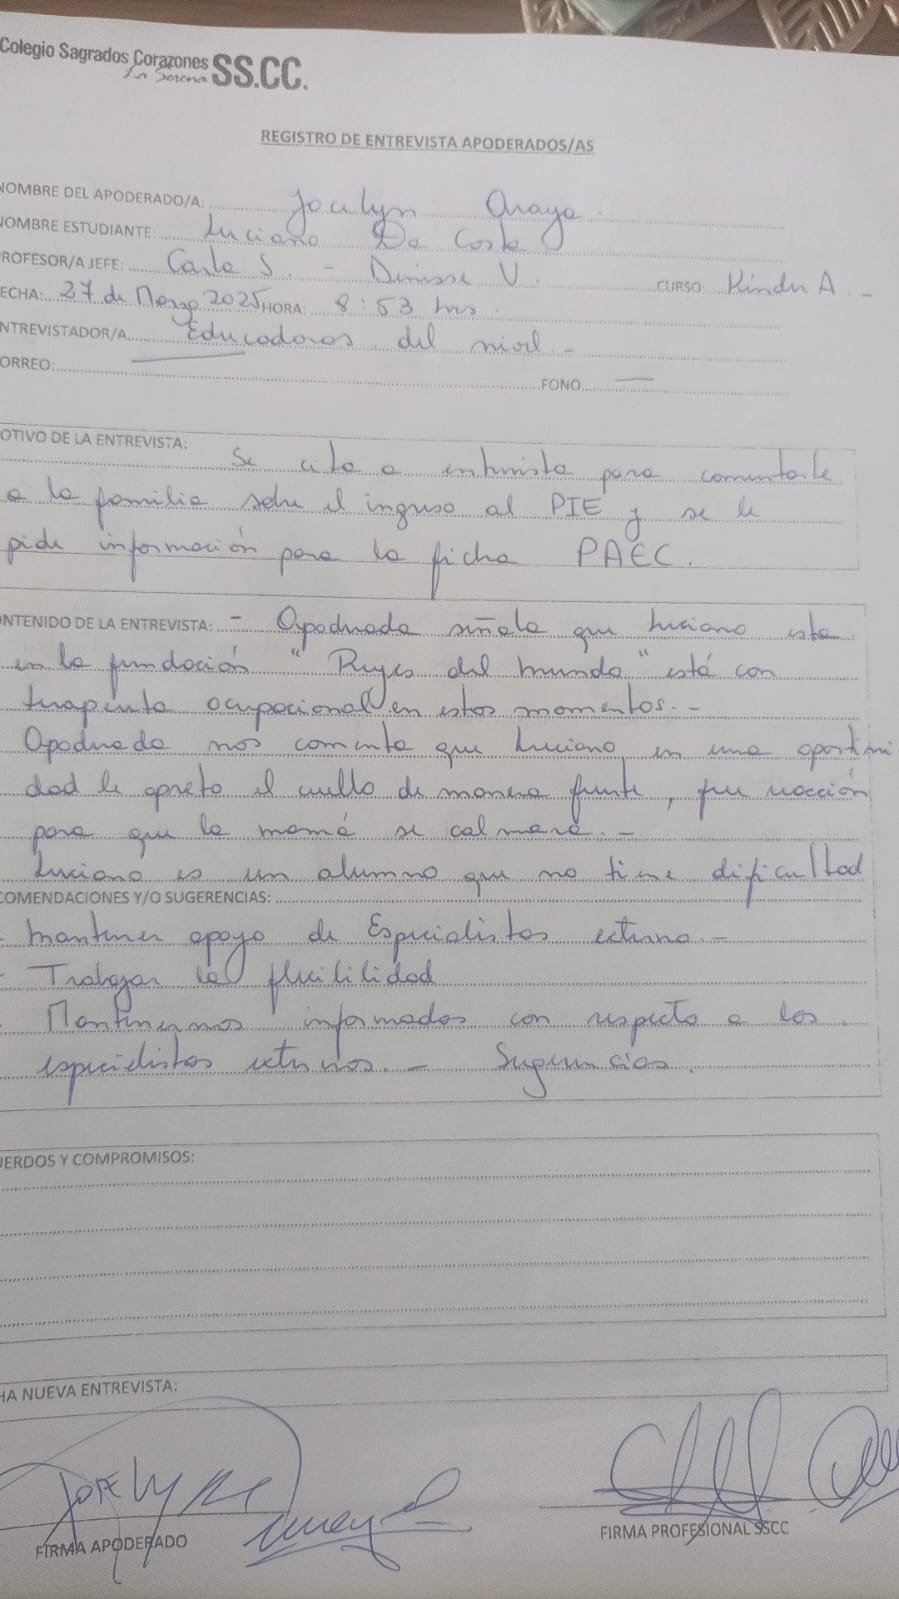 Colegio Sagrados Corazones
La Serena SS.CC.
REGISTRO DE ENTREVISTA APODERADOS/AS
NOMBRE DEL APODERADO/A: Jocelyn Araya
NOMBRE ESTUDIANTE: Luciano Da Costa
PROFESOR/A JEFE: Carla S. - Denisse V. CURSO Kinder A -
ECHA: 27 de Marzo 2025 HORA: 8:53 hrs.
NTREVISTADOR/A Educadoras del nivel -
ORREO: FONO
OTIVO DE LA ENTREVISTA: Se cita a entrevista para comentarle
a la familia sobre el ingreso al PIE y se le
pide información para la ficha PAEC.
ONTENIDO DE LA ENTREVISTA: - Apoderada señala que Luciano esta
en la fundación "Reyes del mundo" está con
terapeuta ocupacional en estos momentos. -
Apoderada nos comenta que Luciano en una oportuni
dad le apreto el cuello de manera fuerte, fue reacción
para que la mamá se calmara. -
Luciano es un alumno que no tiene dificultad
COMENDACIONES Y/O SUGERENCIAS:
- Mantener apoyo de Especialistas externo. -
- Trabajar la flexibilidad
- Mantenernos informados con respecto a los
especialistas externos. - Sugerencias.
UERDOS Y COMPROMISOS:
HA NUEVA ENTREVISTA:
FIRMA APODERADO
FIRMA PROFESIONAL SSCC